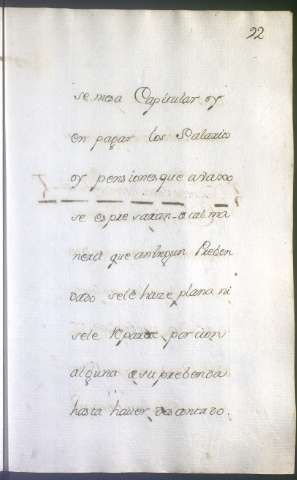 92
se mesa Capitular oy
en pagar los Salarios
oy pensiones que avaxo
se espresaran de tal ma
nera que aningun Preben
dado sele haze plana ni
sele Reparte porcion
alguna de su prebenda
hasta haver